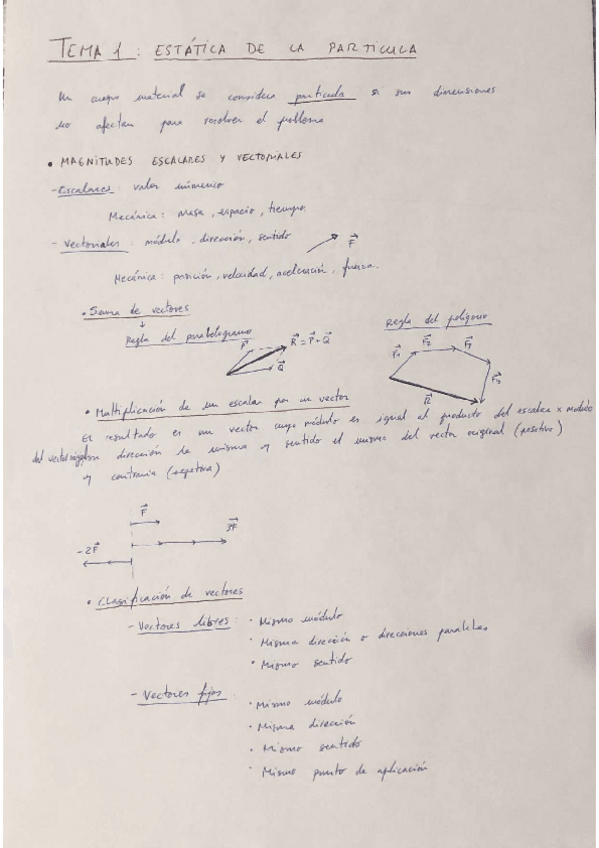 TEMA 1 : ESTÁTICA DE LA PARTICULA
Un cuerpo material se considera partícula si sus dimensiones
no afectan para resolver el problema
• MAGNITUDES ESCALARES Y VECTORIALES
- Escalares : valor númerico
Mecánica : masa , espacio , tiempo.
- Vectoriales : módulo , dirección , sentido
F
Mecánica : posición , velocidad , aceleración , fuerza.
• Suma de vectores
Regla del paralelogramo
P
R = P + Q
Q
Regla del polígono
F₁
F₂
F₃
R
• Multiplicación de un escalar por un vector
El resultado es un vector cuyo módulo es igual al producto del escalar x módulo
del vector dirección la misma y sentido el mismo del vector original (positivo)
y contrario (negativo)
F
3F
-2F
• Clasificación de vectores
- Vectores libres :
• Mismo módulo
• Misma dirección o direcciones paralelas
• Mismo sentido
- Vectores fijos :
• Mismo módulo
• Misma dirección
• Mismo sentido
• Mismo punto de aplicación